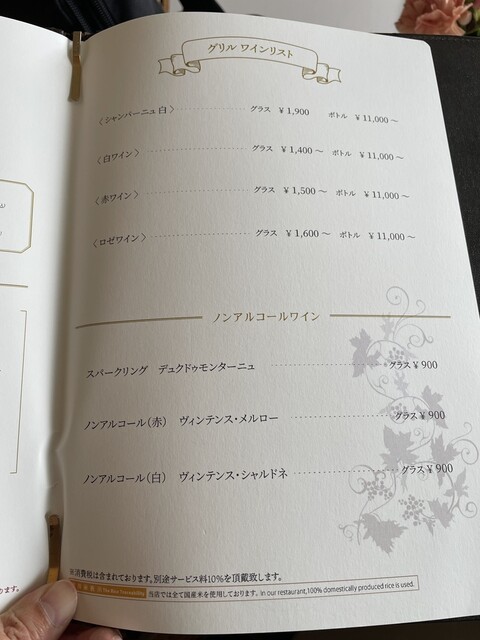 グリル ワインリスト
〈シャンパーニュ 白〉 グラス ¥1,900 ボトル ¥11,000〜
〈白ワイン〉 グラス ¥1,400〜 ボトル ¥11,000〜
〈赤ワイン〉 グラス ¥1,500〜 ボトル ¥11,000〜
〈ロゼワイン〉 グラス ¥1,600〜 ボトル ¥11,000〜
ノンアルコールワイン
スパークリング デュクドゥモンターニュ グラス ¥900
ノンアルコール(赤) ヴィンテンス・メルロー グラス ¥900
ノンアルコール(白) ヴィンテンス・シャルドネ グラス ¥900
※消費税は含まれております。別途サービス料10%を頂戴致します。
当店では全て国産米を使用しております。 In our restaurant,100% domestically produced rice is used.